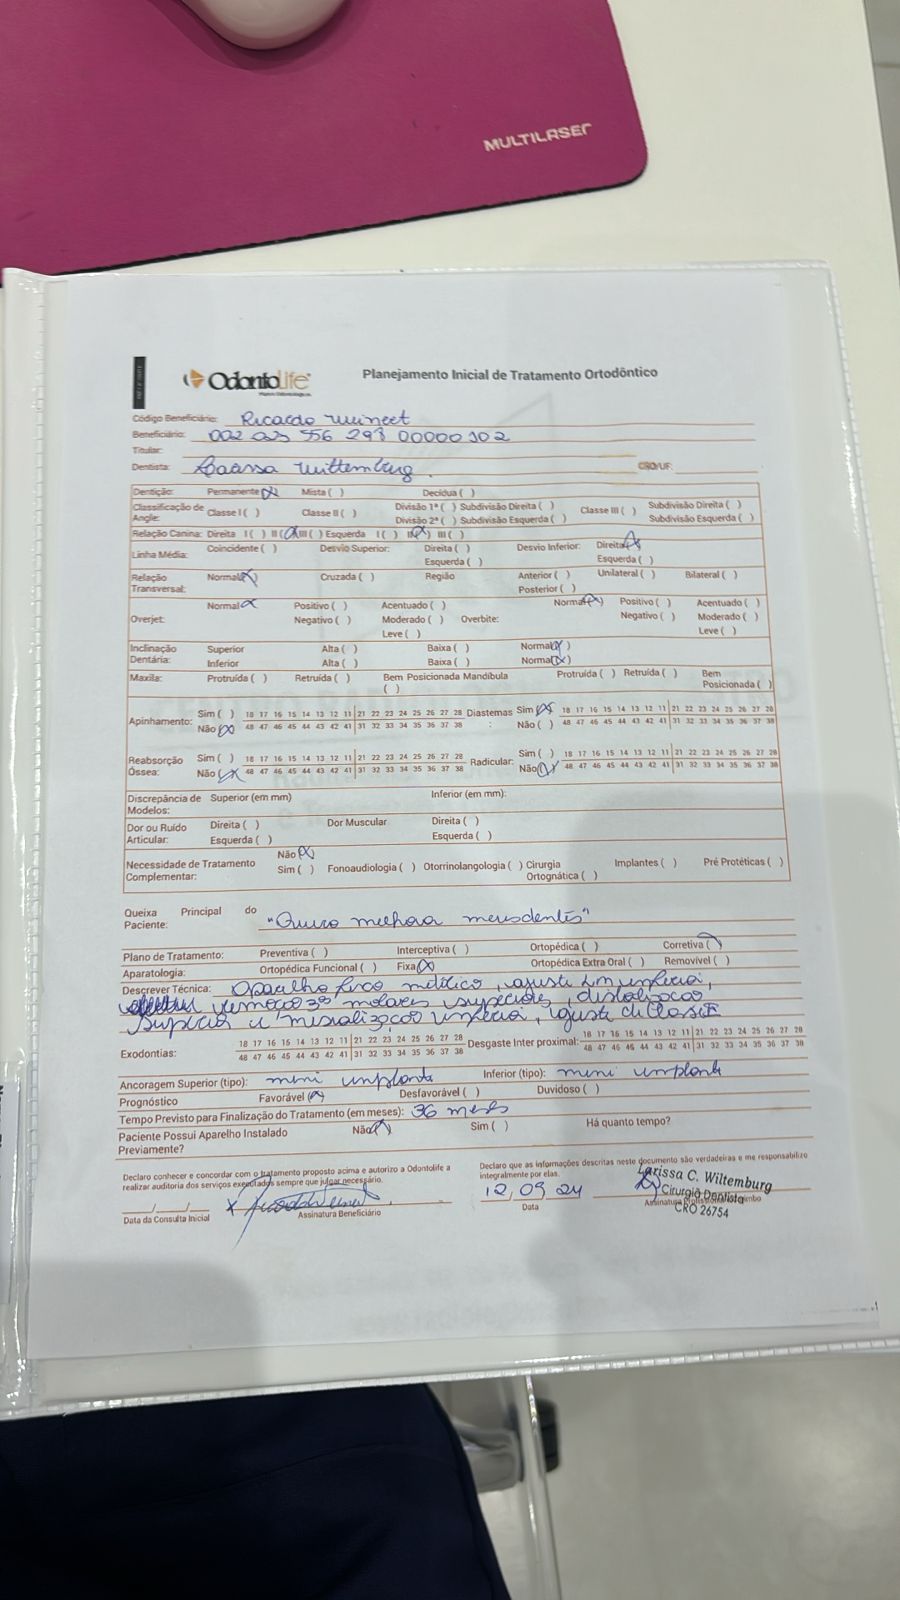 MULTILASER
OdontoLife
Planejamento Inicial de Tratamento Ortodôntico
Código Beneficiário: Ricardo
Beneficiário: 002 025 556 298 00000102
Titular:
Dentista: CRO/UF:
Dentição: Permanente (X) Mista ( ) Decídua ( )
Classificação de Angle: Classe I ( ) Classe II ( ) Divisão 1ª ( ) Subdivisão Direita ( ) Classe III ( ) Subdivisão Direita ( )
Divisão 2ª ( ) Subdivisão Esquerda ( ) Subdivisão Esquerda ( )
Relação Canina: Direita I ( ) II (X) III ( ) Esquerda I ( ) II (X) III ( )
Linha Média: Coincidente ( ) Desvio Superior: Direita ( ) Desvio Inferior: Direita (X)
Esquerda ( ) Esquerda ( )
Relação Transversal: Normal (X) Cruzada ( ) Região Anterior ( ) Unilateral ( ) Bilateral ( )
Posterior ( )
Normal (X) Positivo ( ) Acentuado ( ) Normal (X) Positivo ( ) Acentuado ( )
Overjet: Negativo ( ) Moderado ( ) Overbite: Negativo ( ) Moderado ( )
Leve ( ) Leve ( )
Inclinação Dentária: Superior Alta ( ) Baixa ( ) Normal (X)
Inferior Alta ( ) Baixa ( ) Normal (X)
Maxila: Protruída ( ) Retruída ( ) Bem Posicionada ( ) Mandíbula Protruída ( ) Retruída ( ) Bem Posicionada ( )
Apinhamento: Sim ( ) 18 17 16 15 14 13 12 11 21 22 23 24 25 26 27 28 Diastemas: Sim (X) 18 17 16 15 14 13 12 11 21 22 23 24 25 26 27 28
Não (X) 48 47 46 45 44 43 42 41 31 32 33 34 35 36 37 38 Não ( ) 48 47 46 45 44 43 42 41 31 32 33 34 35 36 37 38
Reabsorção Óssea: Sim ( ) 18 17 16 15 14 13 12 11 21 22 23 24 25 26 27 28 Radicular: Sim ( ) 18 17 16 15 14 13 12 11 21 22 23 24 25 26 27 28
Não (X) 48 47 46 45 44 43 42 41 31 32 33 34 35 36 37 38 Não (X) 48 47 46 45 44 43 42 41 31 32 33 34 35 36 37 38
Discrepância de Modelos: Superior (em mm) Inferior (em mm):
Dor ou Ruído Articular: Direita ( ) Dor Muscular Direita ( )
Esquerda ( ) Esquerda ( )
Necessidade de Tratamento Complementar: Não (X)
Sim ( ) Fonoaudiologia ( ) Otorrinolangologia ( ) Cirurgia Ortognática ( ) Implantes ( ) Pré Protéticas ( )
Queixa Principal do Paciente: "Quero melhora meus dentes"
Plano de Tratamento: Preventiva ( ) Interceptiva ( ) Ortopédica ( ) Corretiva (X)
Aparatologia: Ortopédica Funcional ( ) Fixa (X) Ortopédica Extra Oral ( ) Removível ( )
Descrever Técnica: Aparelho fixo metálico, ajuste Lm inferior,
remoção 3º molares superiores, distalização
superior e mesialização inferior, ajuste de Classe
Exodontias: 18 17 16 15 14 13 12 11 21 22 23 24 25 26 27 28 Desgaste Inter proximal: 18 17 16 15 14 13 12 11 21 22 23 24 25 26 27 28
48 47 46 45 44 43 42 41 31 32 33 34 35 36 37 38 48 47 46 45 44 43 42 41 31 32 33 34 35 36 37 38
Ancoragem Superior (tipo): mini implante Inferior (tipo): mini implante
Prognóstico Favorável (X) Desfavorável ( ) Duvidoso ( )
Tempo Previsto para Finalização do Tratamento (em meses): 36 meses
Paciente Possui Aparelho Instalado Previamente? Não (X) Sim ( ) Há quanto tempo?
Declaro conhecer e concordar com o tratamento proposto acima e autorizo a Odontolife a
realizar auditoria dos serviços executados sempre que julgar necessário.
Declaro que as informações descritas neste documento são verdadeiras e me responsabilizo
integralmente por elas.
Larissa C. Wiltemburg
Cirurgiã Dentista
CRO 26754
12/09/24
Data da Consulta Inicial
Assinatura Beneficiário
Data